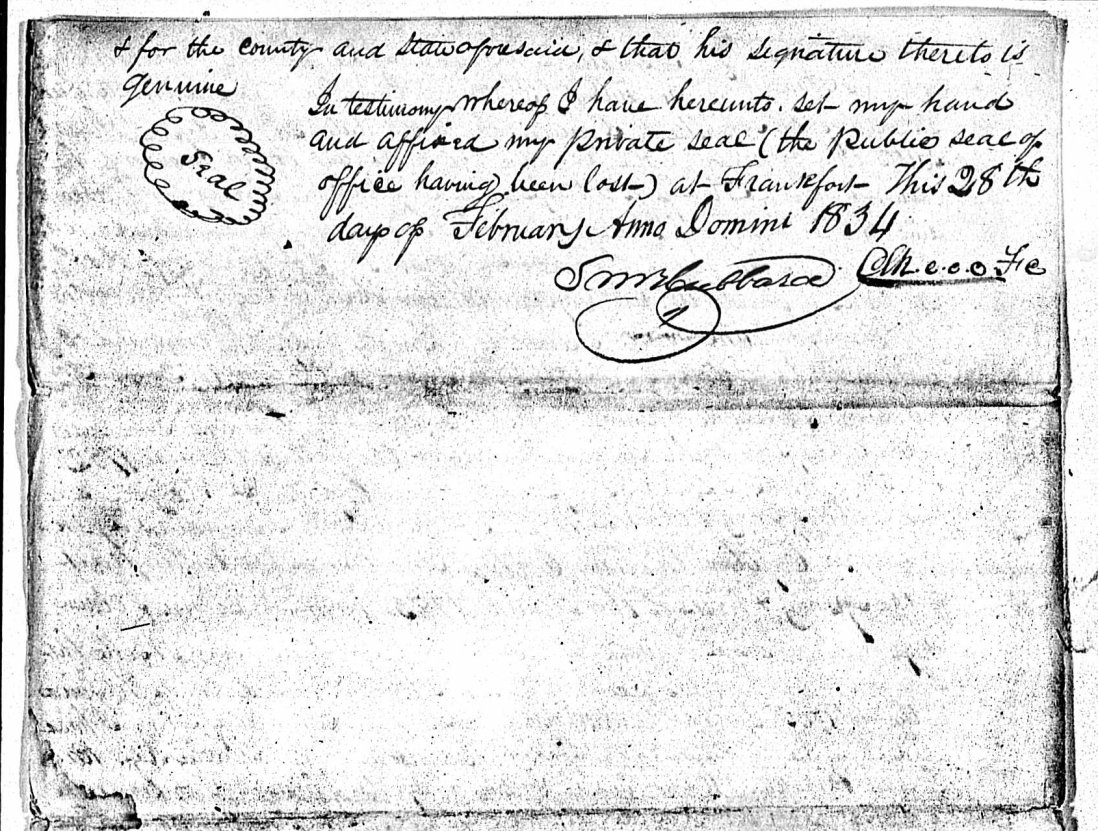 & for the county and State aforesaid, & that his signature thereto is
genuine
Seal
In testimony whereof I have hereunto set my hand
and affixed my private seal (the Public seal of
office having been lost) at Frankfort This 28th
day of February Anno Domini 1834